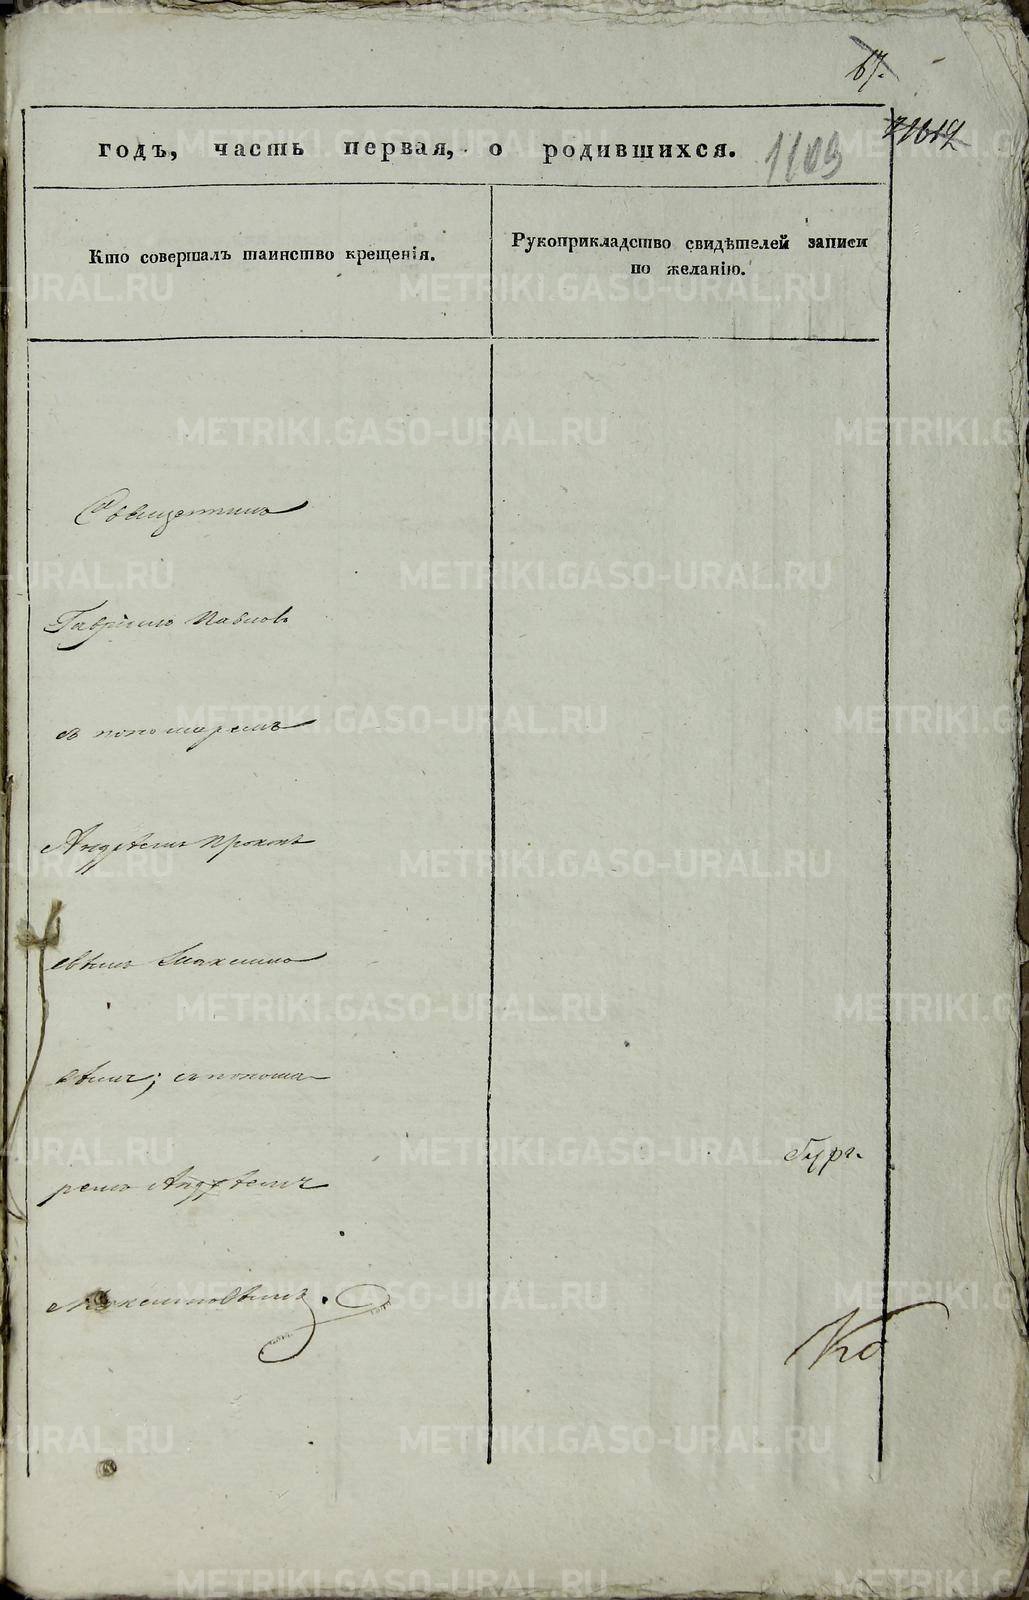 67.
годъ, часть первая, о родившихся.
1103
Кто совершалъ таинство крещенія.
Рукоприкладство свидѣтелей записи
по желанію.
Священникъ
Гавріилъ Павловъ
съ пономаремъ
Андрѣемъ Прокопь
евымъ Максимо
вымъ; съ понома
ремъ Андрѣемъ
Максимовымъ.
Ко
METRIKI.GASO-URAL.RU